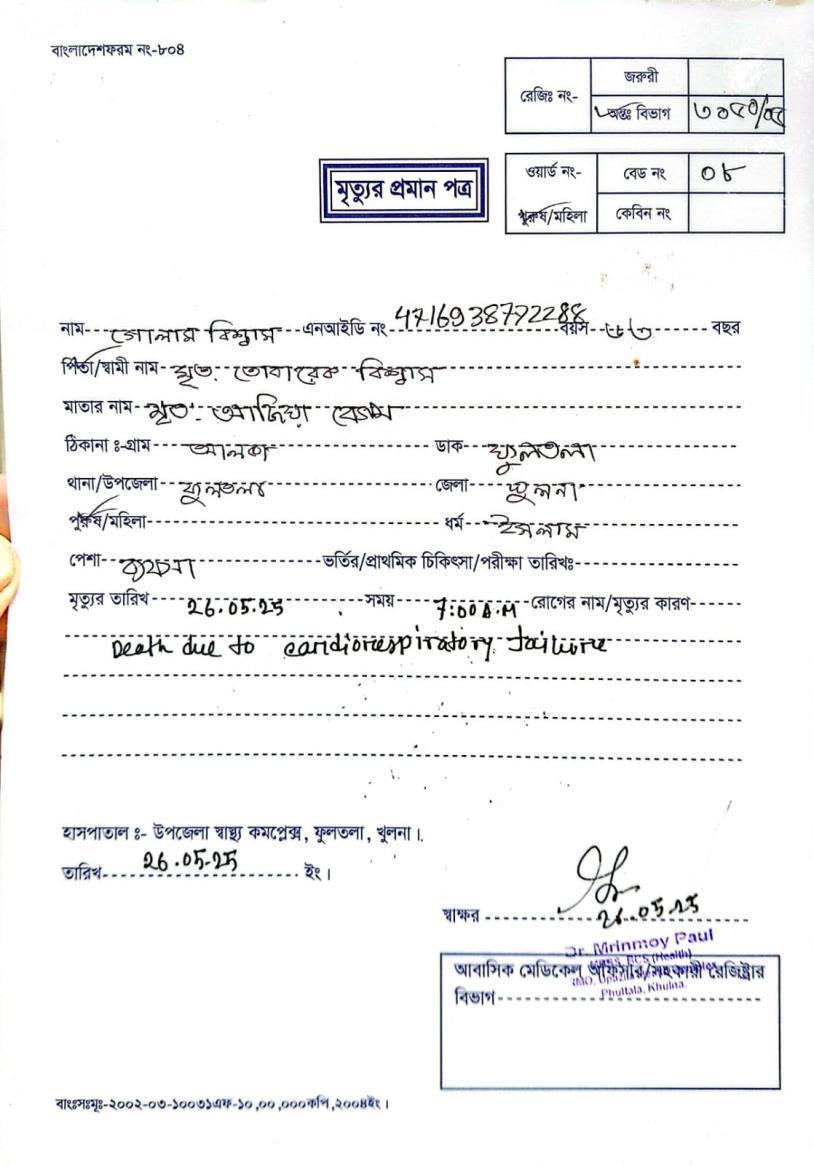 বাংলাদেশফরম নং-৮০৪
রেজিঃ নং-
জরুরী
অন্তঃ বিভাগ
মৃত্যুর প্রমান পত্র
ওয়ার্ড নং- বেড নং ০৮
পুরুষ/মহিলা কেবিন নং
নাম---গোলাম বিশ্বাস---এনআইডি নং 4716938792288 বয়স--৬৩------- বছর
পিতা/স্বামী নাম--মৃত. তোবারেক বিশ্বাস
মাতার নাম--মৃত. আজিয়া বেগম
ঠিকানা ঃ-গ্রাম---আলকা---ডাক--ফুলতলা
থানা/উপজেলা---ফুলতলা---জেলা---খুলনা
পুরুষ/মহিলা---ধর্ম---ইসলাম
পেশা--ব্যবসা---ভর্তির/প্রাথমিক চিকিৎসা/পরীক্ষা তারিখঃ---
মৃত্যুর তারিখ 26.05.25 সময় 7:00 A.M রোগের নাম/মৃত্যুর কারণ------
Death due to cardiorespiratory failure
হাসপাতাল ঃ- উপজেলা স্বাস্থ্য কমপ্লেক্স, ফুলতলা, খুলনা।
তারিখ 26.05.25 ইং।
স্বাক্ষর 26.05.25
Dr. Mrinmoy Paul
MBBS, BCS (Health)
আবাসিক মেডিকেল অফিসার/সহকারী রেজিষ্ট্রার
বিভাগ
Phultala, Khulna.
বাংঃসঃমূঃ-২০০২-০৩-১০০৩১এফ-১০,০০,০০০কপি,২০০৪ইং।